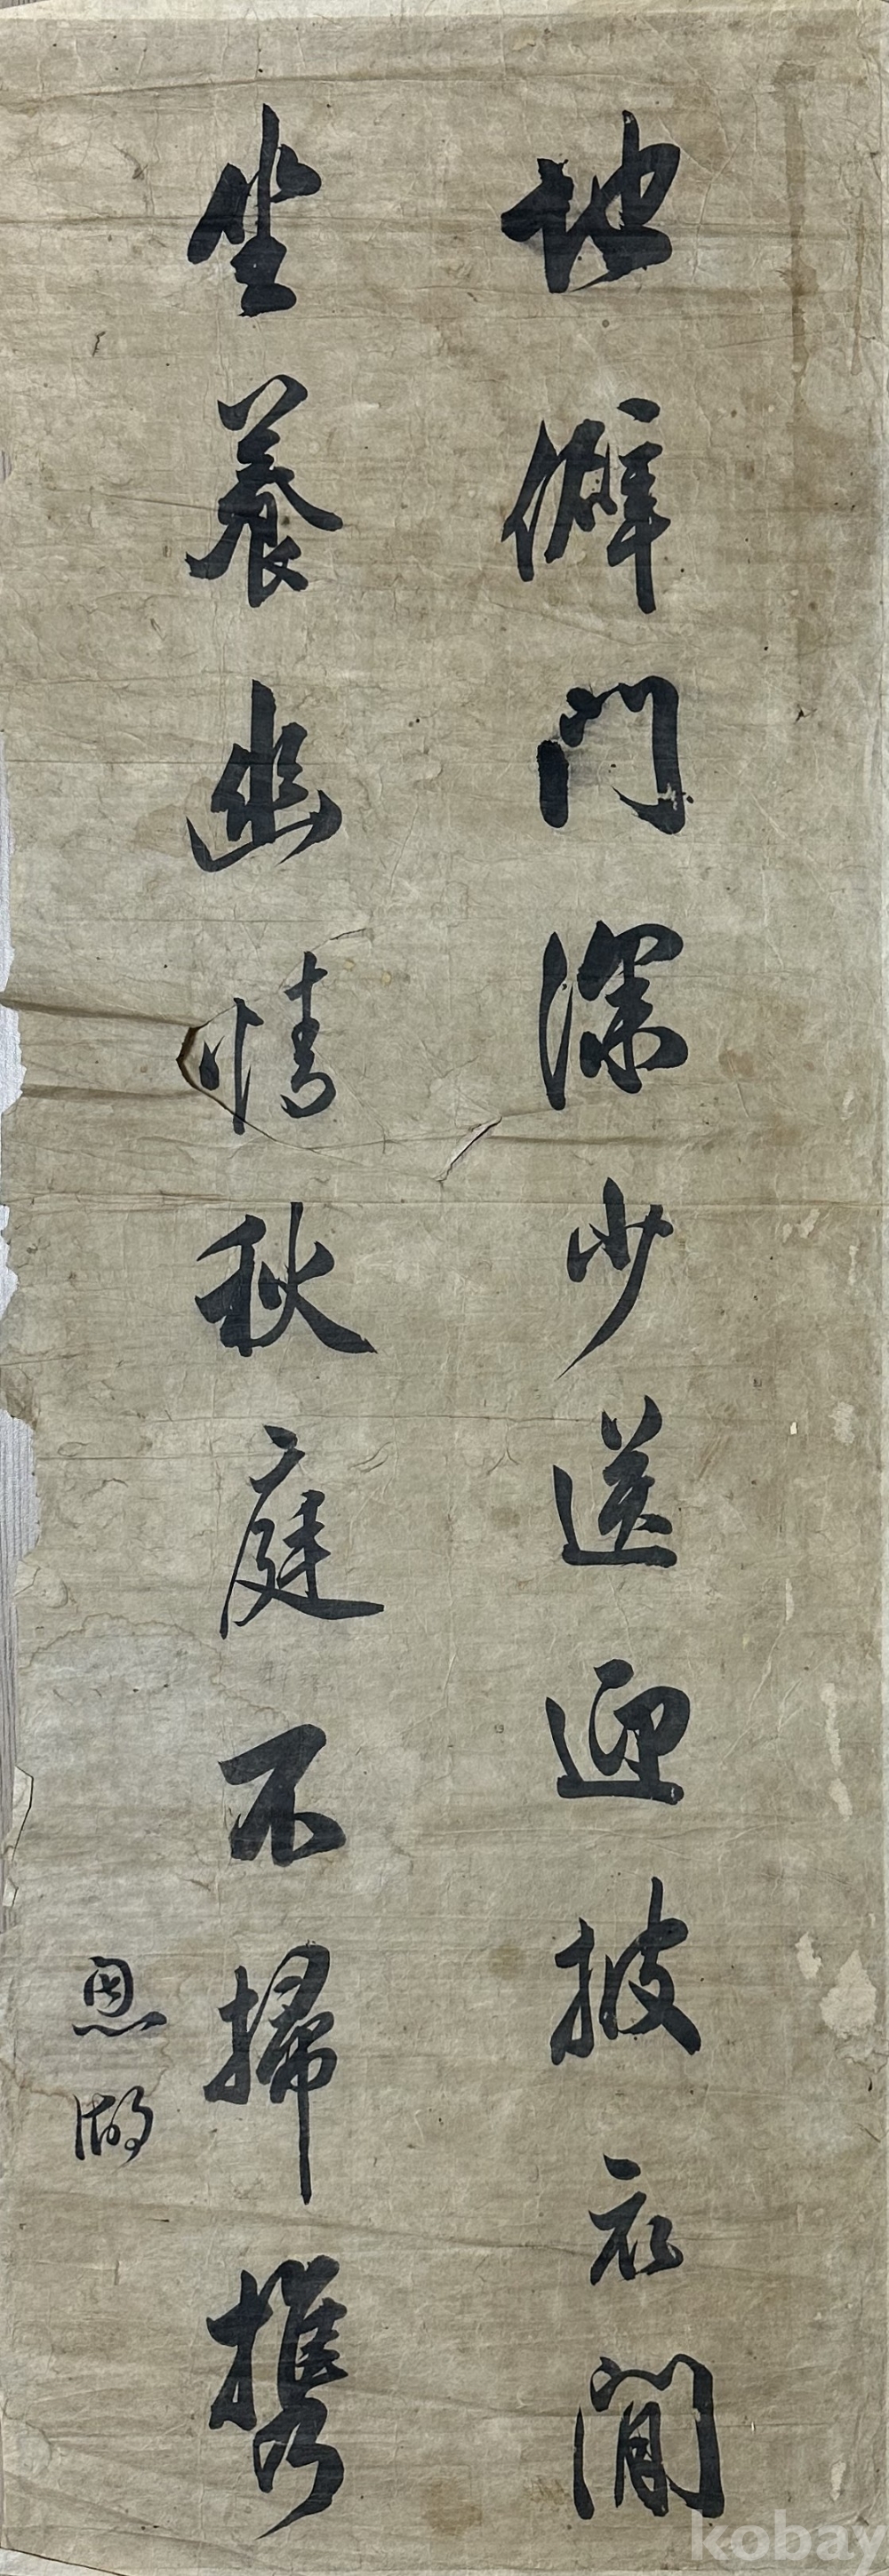 地僻門深少送迎披衣閒
坐養幽情秋庭不掃携
恩湖
kobay